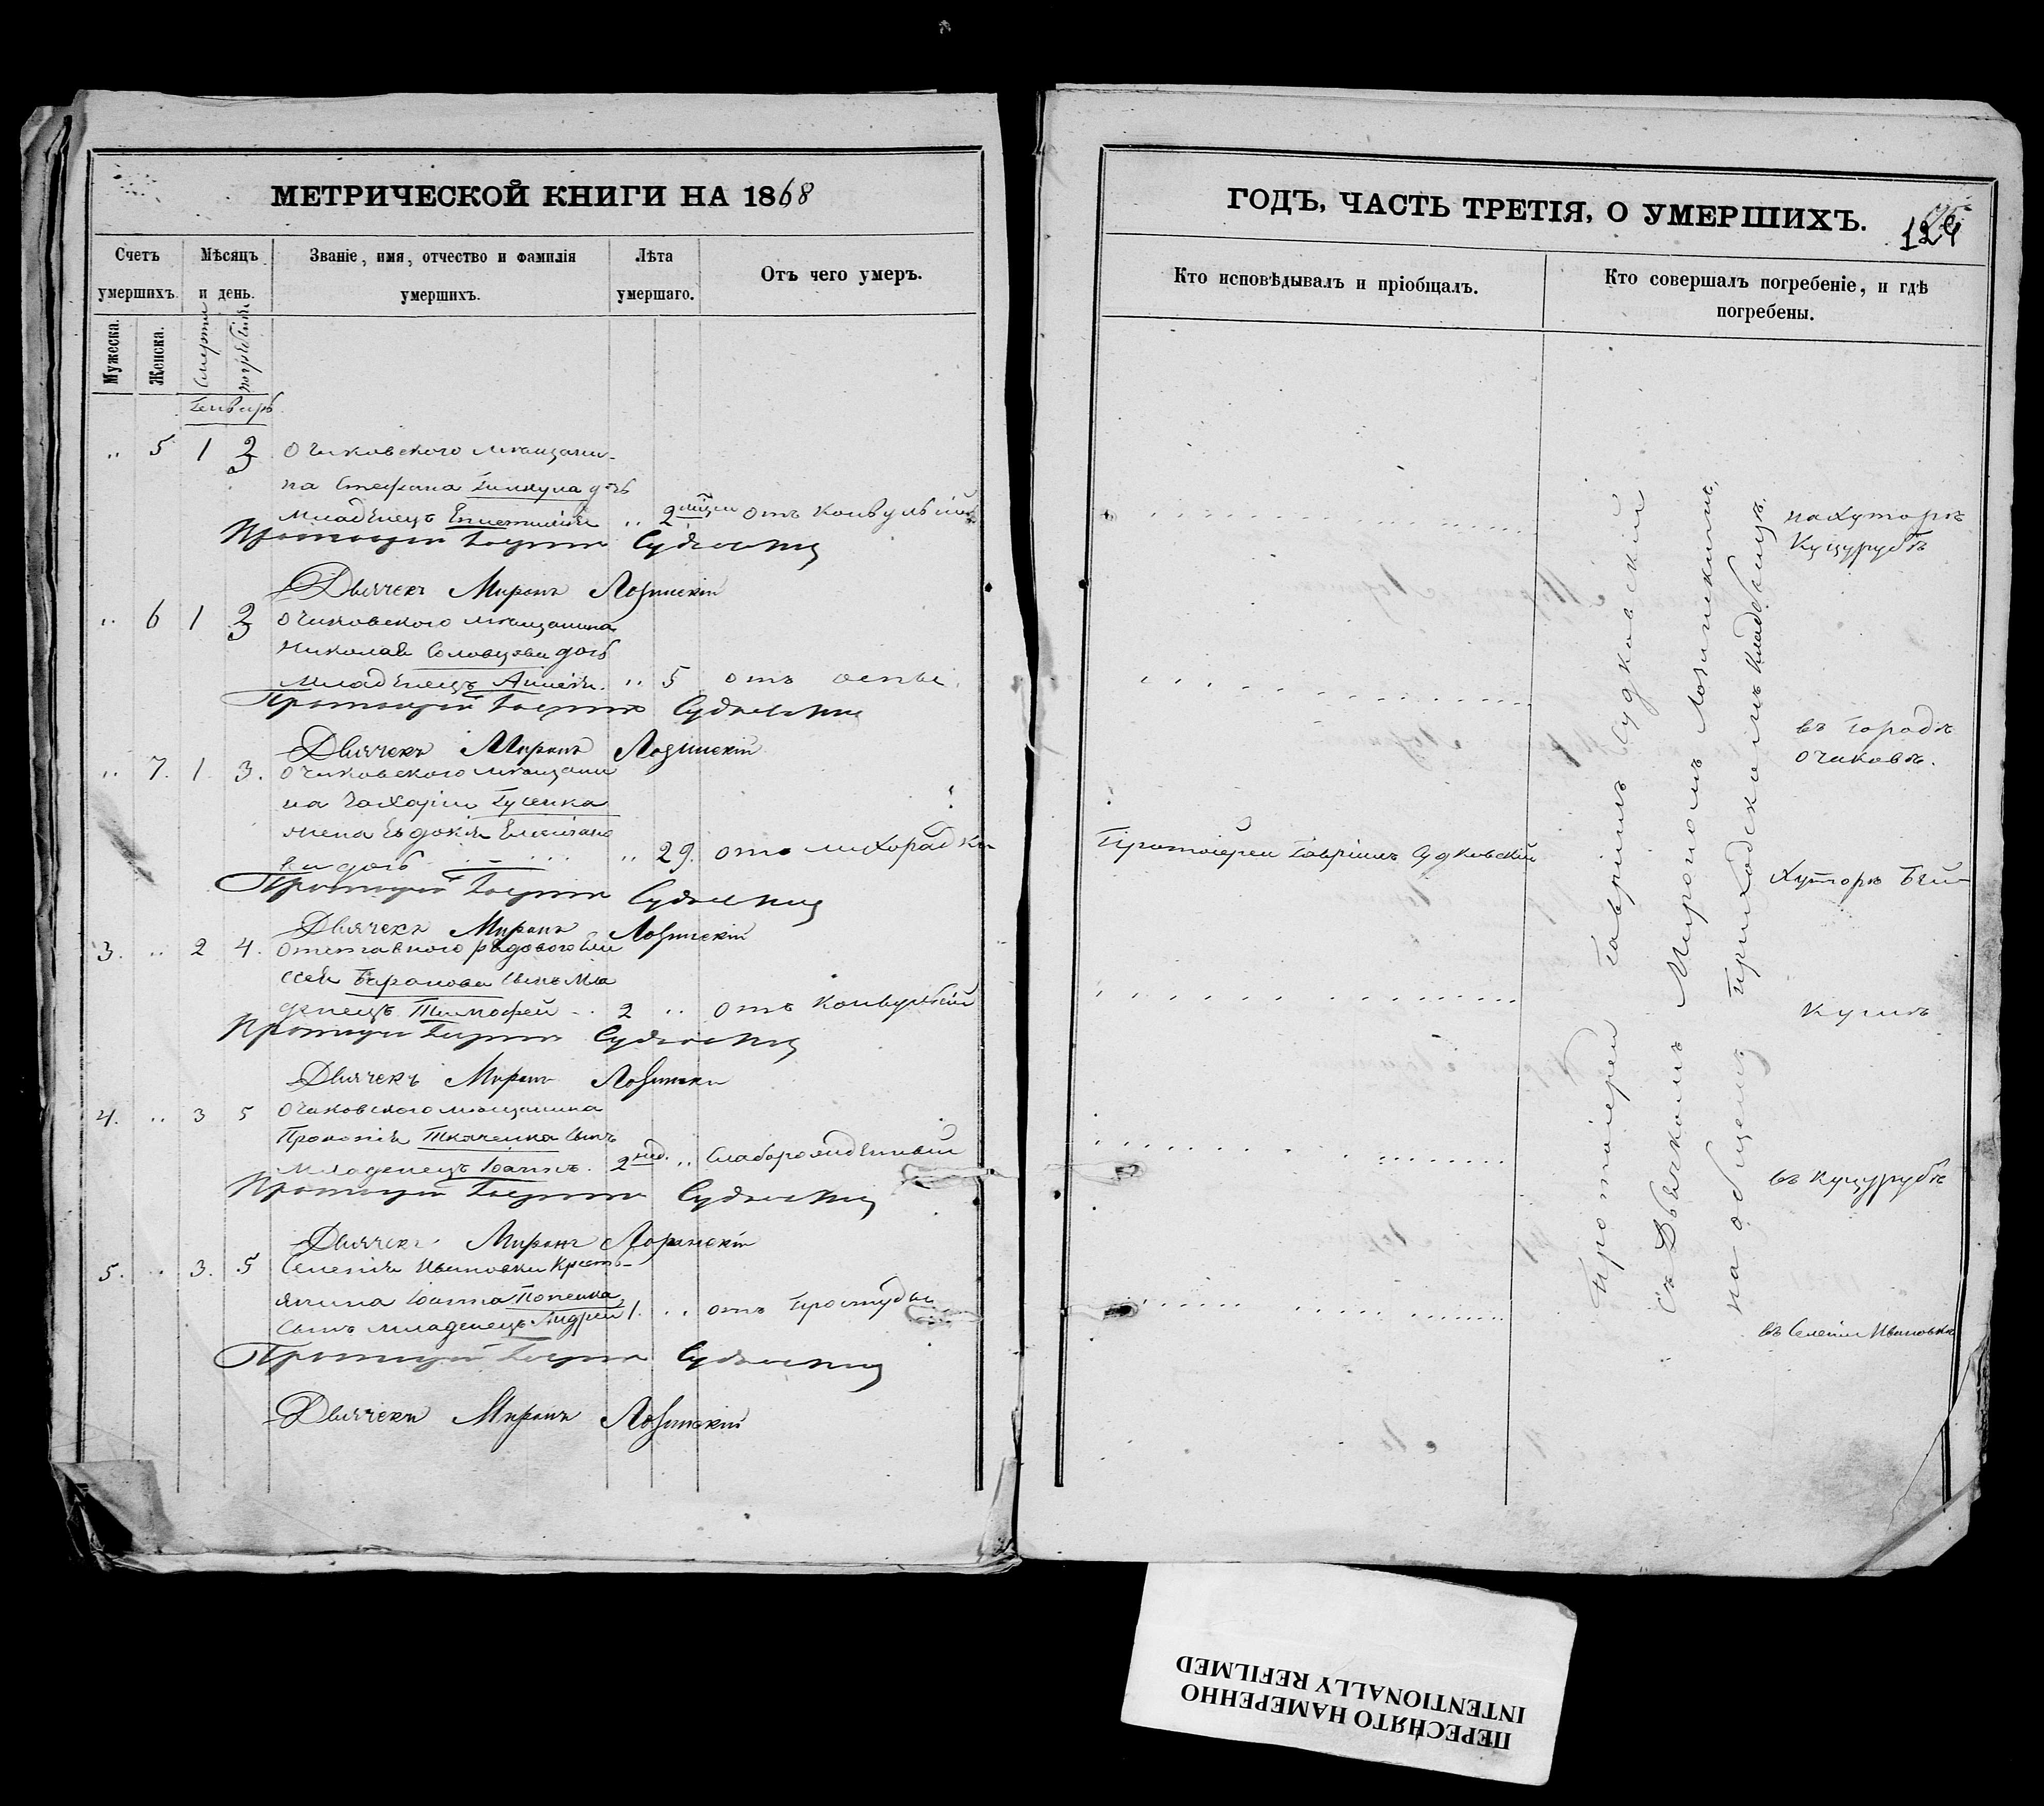 МЕТРИЧЕСКОЙ КНИГИ НА 1868
Счетъ умершихъ.
Мѣсяцъ и день.
Званіе, имя, отчество и фамилія умершихъ.
Лѣта умершаго.
Отъ чего умеръ.
Мужеска.
Женска.
Смерти
погребенія
Генваръ
„ 5 1 2 Очаковскаго мѣщани-
на Стефана дочь
младенецъ „ 2 мѣсяц отъ конвульсій
Протоіерей Гавріилъ Судковскій
Дьячекъ Миронъ Лозинскій
„ 6 1 2 Очаковскаго мѣщанина
Николая дочь
младенецъ „ 5 отъ оспы.
Протоіерей Гавріилъ Судковскій
Дьячекъ Миронъ Лозинскій
„ 7. 1. 3. Очаковскаго мѣщани
на Захаріи Гусенка
жена Евдокія
„ 29. отъ лихорадки
Протоіерей Гавріилъ Судковскій
Дьячекъ Миронъ Лозинскій
3. „ 2 4. Отставного рядового
Баранова сынъ мла
денецъ Тимофей 2 „ отъ конвульсій
Протоіерей Гавріилъ Судковскій
Дьячекъ Миронъ Лозинскій
4. „ 3 5 Очаковскаго мѣщанина
Прокопія Ткаченка сынъ
младенецъ Іоаннъ. 2 нед. „ слаборожденный
Протоіерей Гавріилъ Судковскій
Дьячекъ Миронъ Лозинскій
5. „ 3. 5 Селенія Ивановки крестъ-
янина Іоанна Попенка
сынъ младенецъ Андрей 1. „ отъ простуды
Протоіерей Гавріилъ Судковскій
Дьячекъ Миронъ Лозинскій
ГОДЪ, ЧАСТЬ ТРЕТІЯ, О УМЕРШИХЪ.
Кто исповѣдывалъ и пріобщалъ.
Кто совершалъ погребеніе, и гдѣ погребены.
Протоіерей Гавріилъ Судковскій
Протоіерей Гавріилъ Судковскій
съ Дьячкомъ Мирономъ Лозинскимъ,
на общемъ приходскомъ кладбищѣ.
на хуторѣ
Куцурубѣ
въ городѣ
Очаковѣ.
Хуторѣ
въ Куцурубѣ
въ Селеніи Ивановкѣ
ПЕРЕСНЯТО НАМЕРЕННО
INTENTIONALLY REFILMED